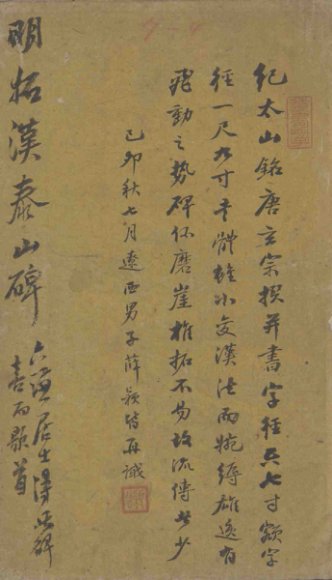 紀太山銘唐玄宗撰并書字徑六七寸額字
徑一尺九寸字體雖小變漢法而婉縟雄逸有
飛動之勢碑係磨崖椎拓不易故流傳甚少
己卯秋七月遼西男子薛 再識
明拓漢泰山碑
居士得此碑
喜而 首